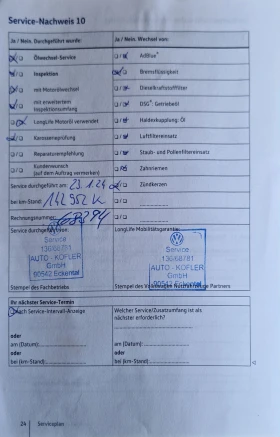 Service-Nachweis 10
Ja / Nein. Durchgeführt wurde:
Ja / Nein. Wechsel von:
Ölwechsel-Service
AdBlue®
Inspektion
Bremsflüssigkeit
mit Motorölwechsel
Dieselkraftstofffilter
mit erweitertem
Inspektionsumfang
DSG®-Getriebeöl
LongLife Motoröl verwendet
Haldexkupplung: Öl
Karosserieprüfung
Luftfiltereinsatz
Reparaturempfehlung
Staub- und Pollenfiltereinsatz
Kundenwunsch
(auf dem Auftrag vermerken)
Zahnriemen
Service durchgeführt am: 23.1.24
Zündkerzen
bei km-Stand:
Rechnungsnummer:
Service durchgeführt:
LongLife Mobilitätsgarantie:
Service
136/68781
AUTO - KOFLER
GmbH
90542 Eckental
Service
136/68781
AUTO - KOFLER
GmbH
90542 Eckental
Stempel des Fachbetriebs
Stempel des Volkswagen Nutzfahrzeuge Partners
Ihr nächster Service-Termin
Nach Service-Intervall-Anzeige
oder
am (Datum):
oder
bei (km-Stand):
Welcher Service/Zusatzumfang ist als
nächster erforderlich?
oder
am (Datum):
oder
bei (km-Stand):
24 Serviceplan